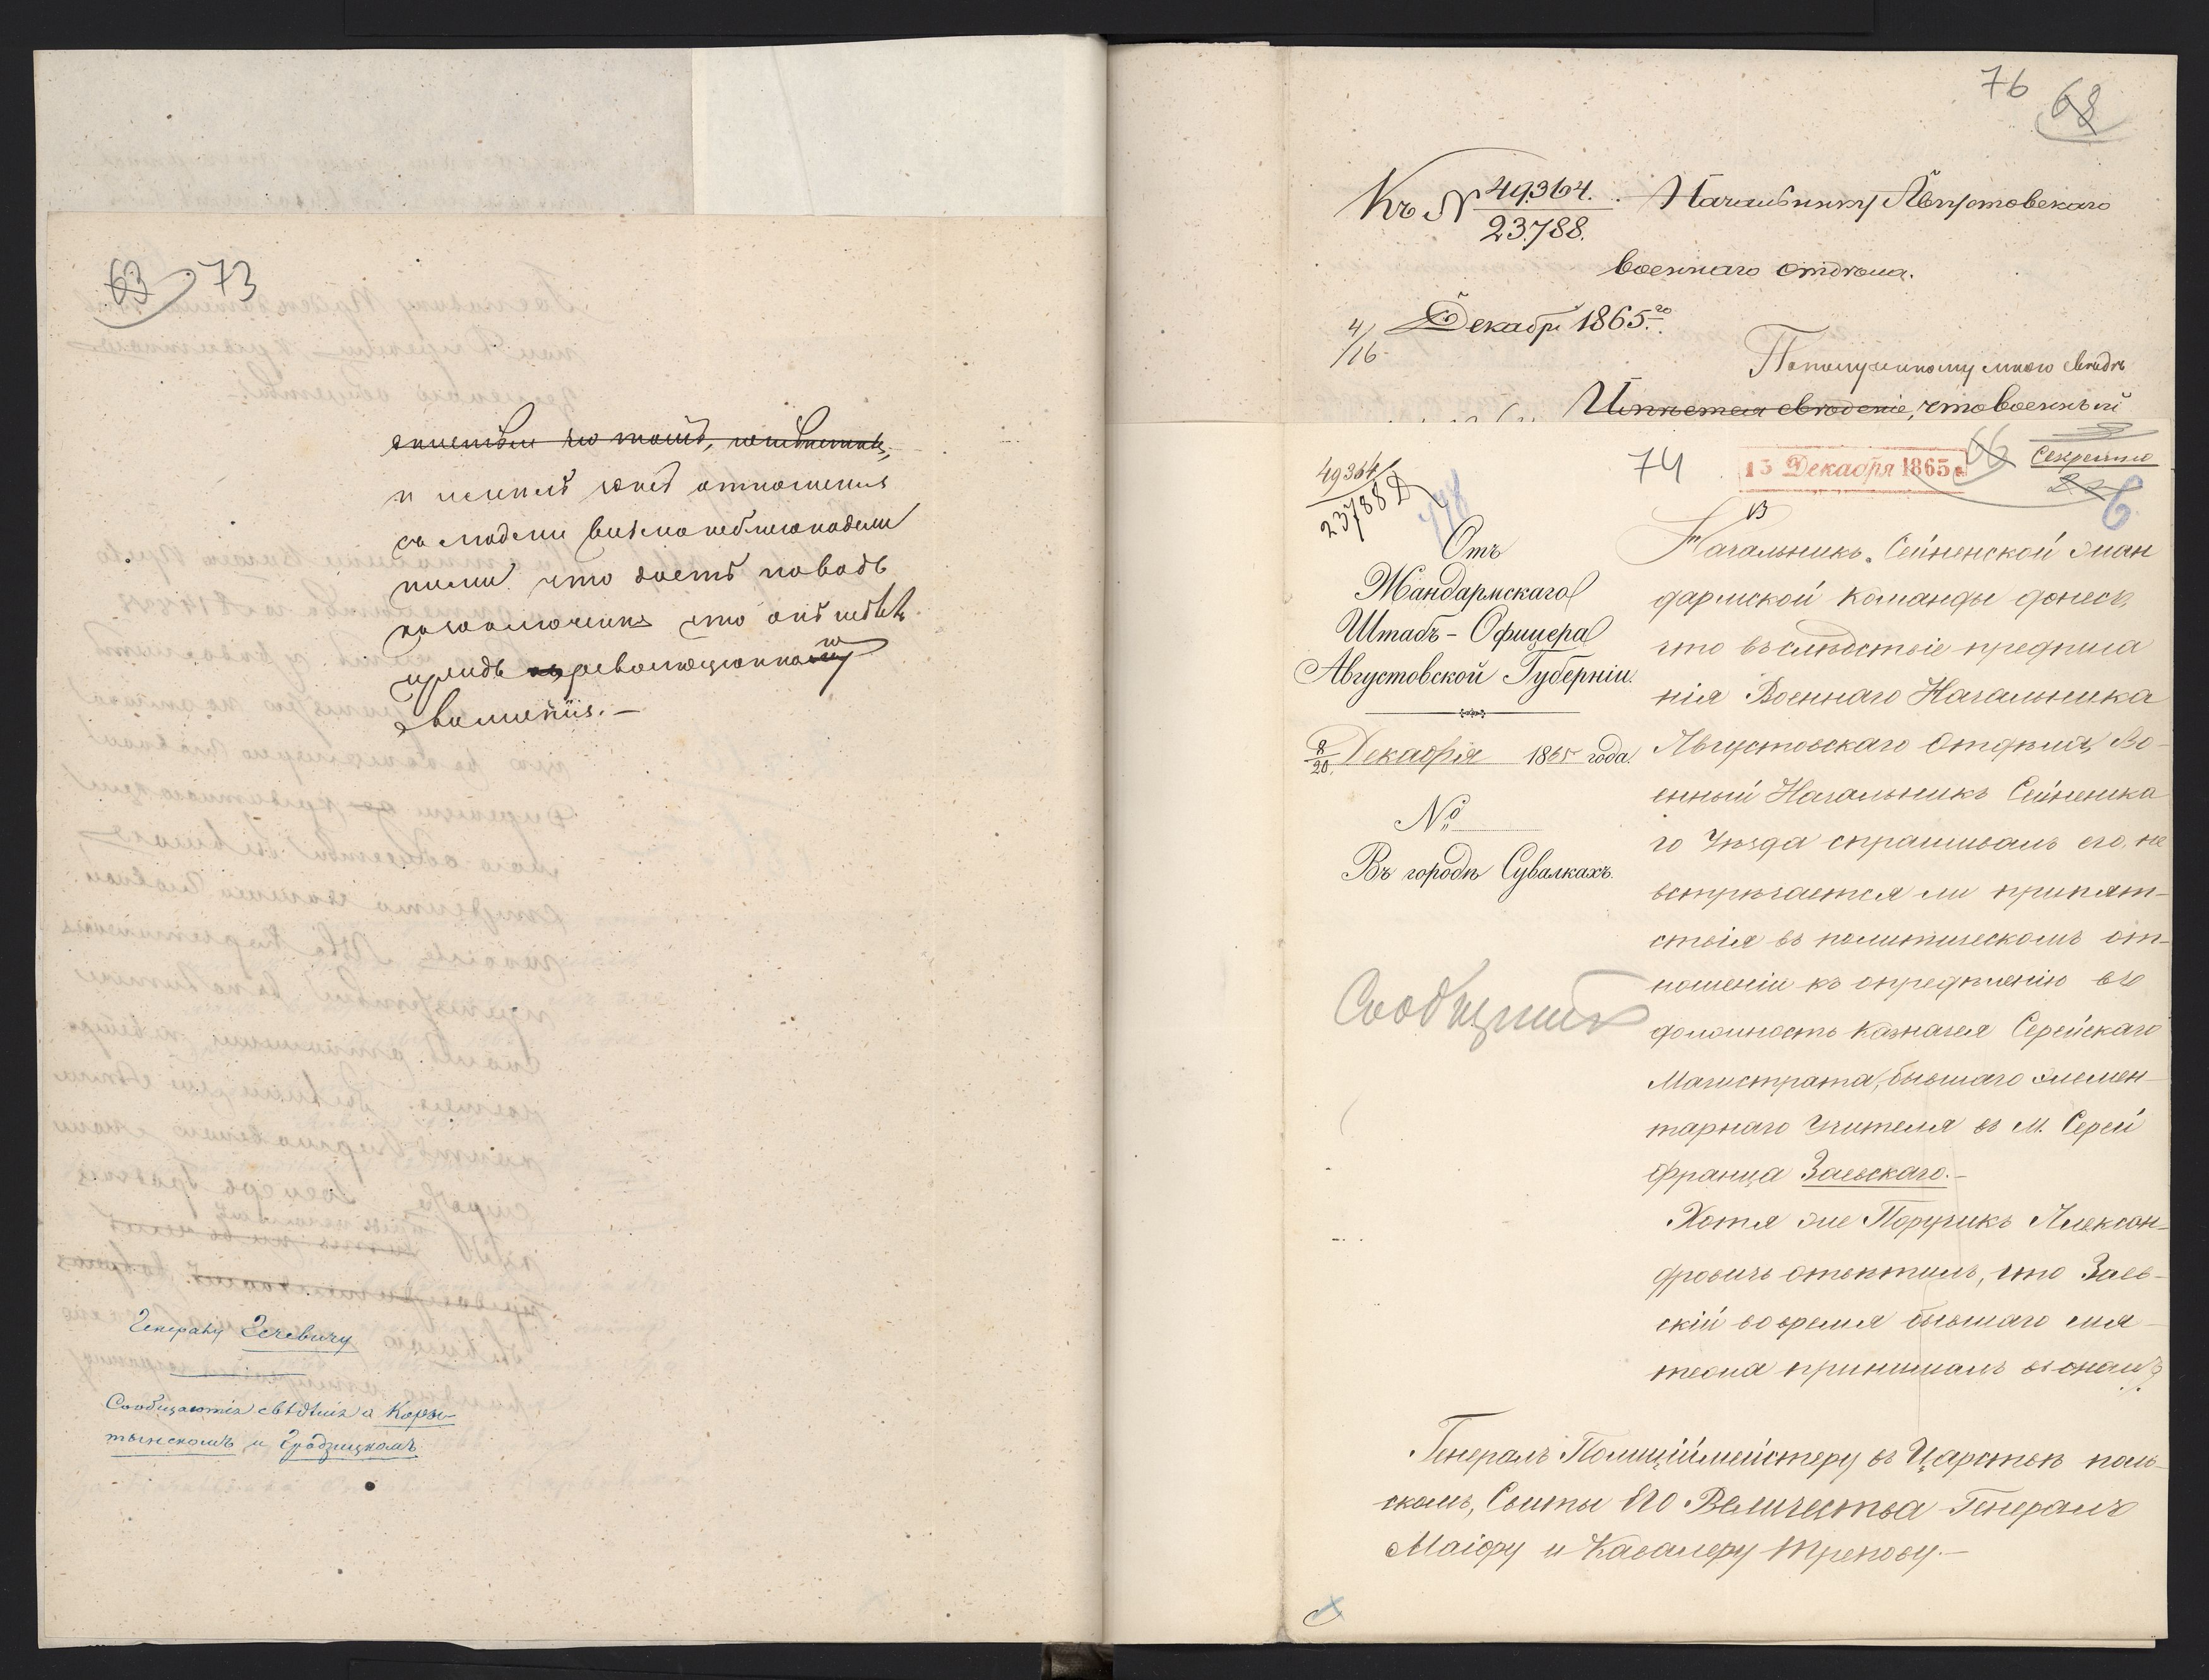 63 73
и имелъ
съ людьми весьма неблагонадеж
ными что даетъ поводъ
что онъ
революціонно
движенію.—
Генералу Зечевичу
Сообщаются свѣдѣнія о Коры-
тынскомъ и Гродзицкомъ
76 68
Къ № 49364./23788. Начальнику Августовскаго
военнаго отдѣла.
4/16 Декабря 1865го.
По полученному мною свѣдѣ
Имѣется свѣденіе, что военный
49364/23788 Д
178
74
13 Декабря 1865
66
Секретно
6
Отъ
Жандармскаго
Штабъ-Офицера
Августовской Губерніи.
8/20 Декабря 1865 года.
№
Въ городѣ Сувалкахъ.
Сообщить
Начальникъ Сейненской жан
дармской команды донесъ,
что въ слѣдствіе предписа
нія Военнаго Начальника
Августовскаго Отдѣла, Во-
енный Начальникъ Сейненска
го Уѣзда спрашивалъ его, не
встрѣчается ли препят-
ствія въ политическомъ от-
ношеніи къ опредѣленію въ
должность казначея Серейскаго
Магистрата, бывшаго элемен-
тарнаго учителя въ м. Серей
Франца Заевскаго.—
Хотя же Поручикъ Алексан-
дровичъ отвѣтилъ, что Заев-
скій во время бывшаго мя-
тежа принималъ въ ономъ
Генералъ Полиціймейстеру въ Царствѣ поль-
скомъ, Свиты Его Величества Генералъ
Маіору и Кавалеру Трепову.—